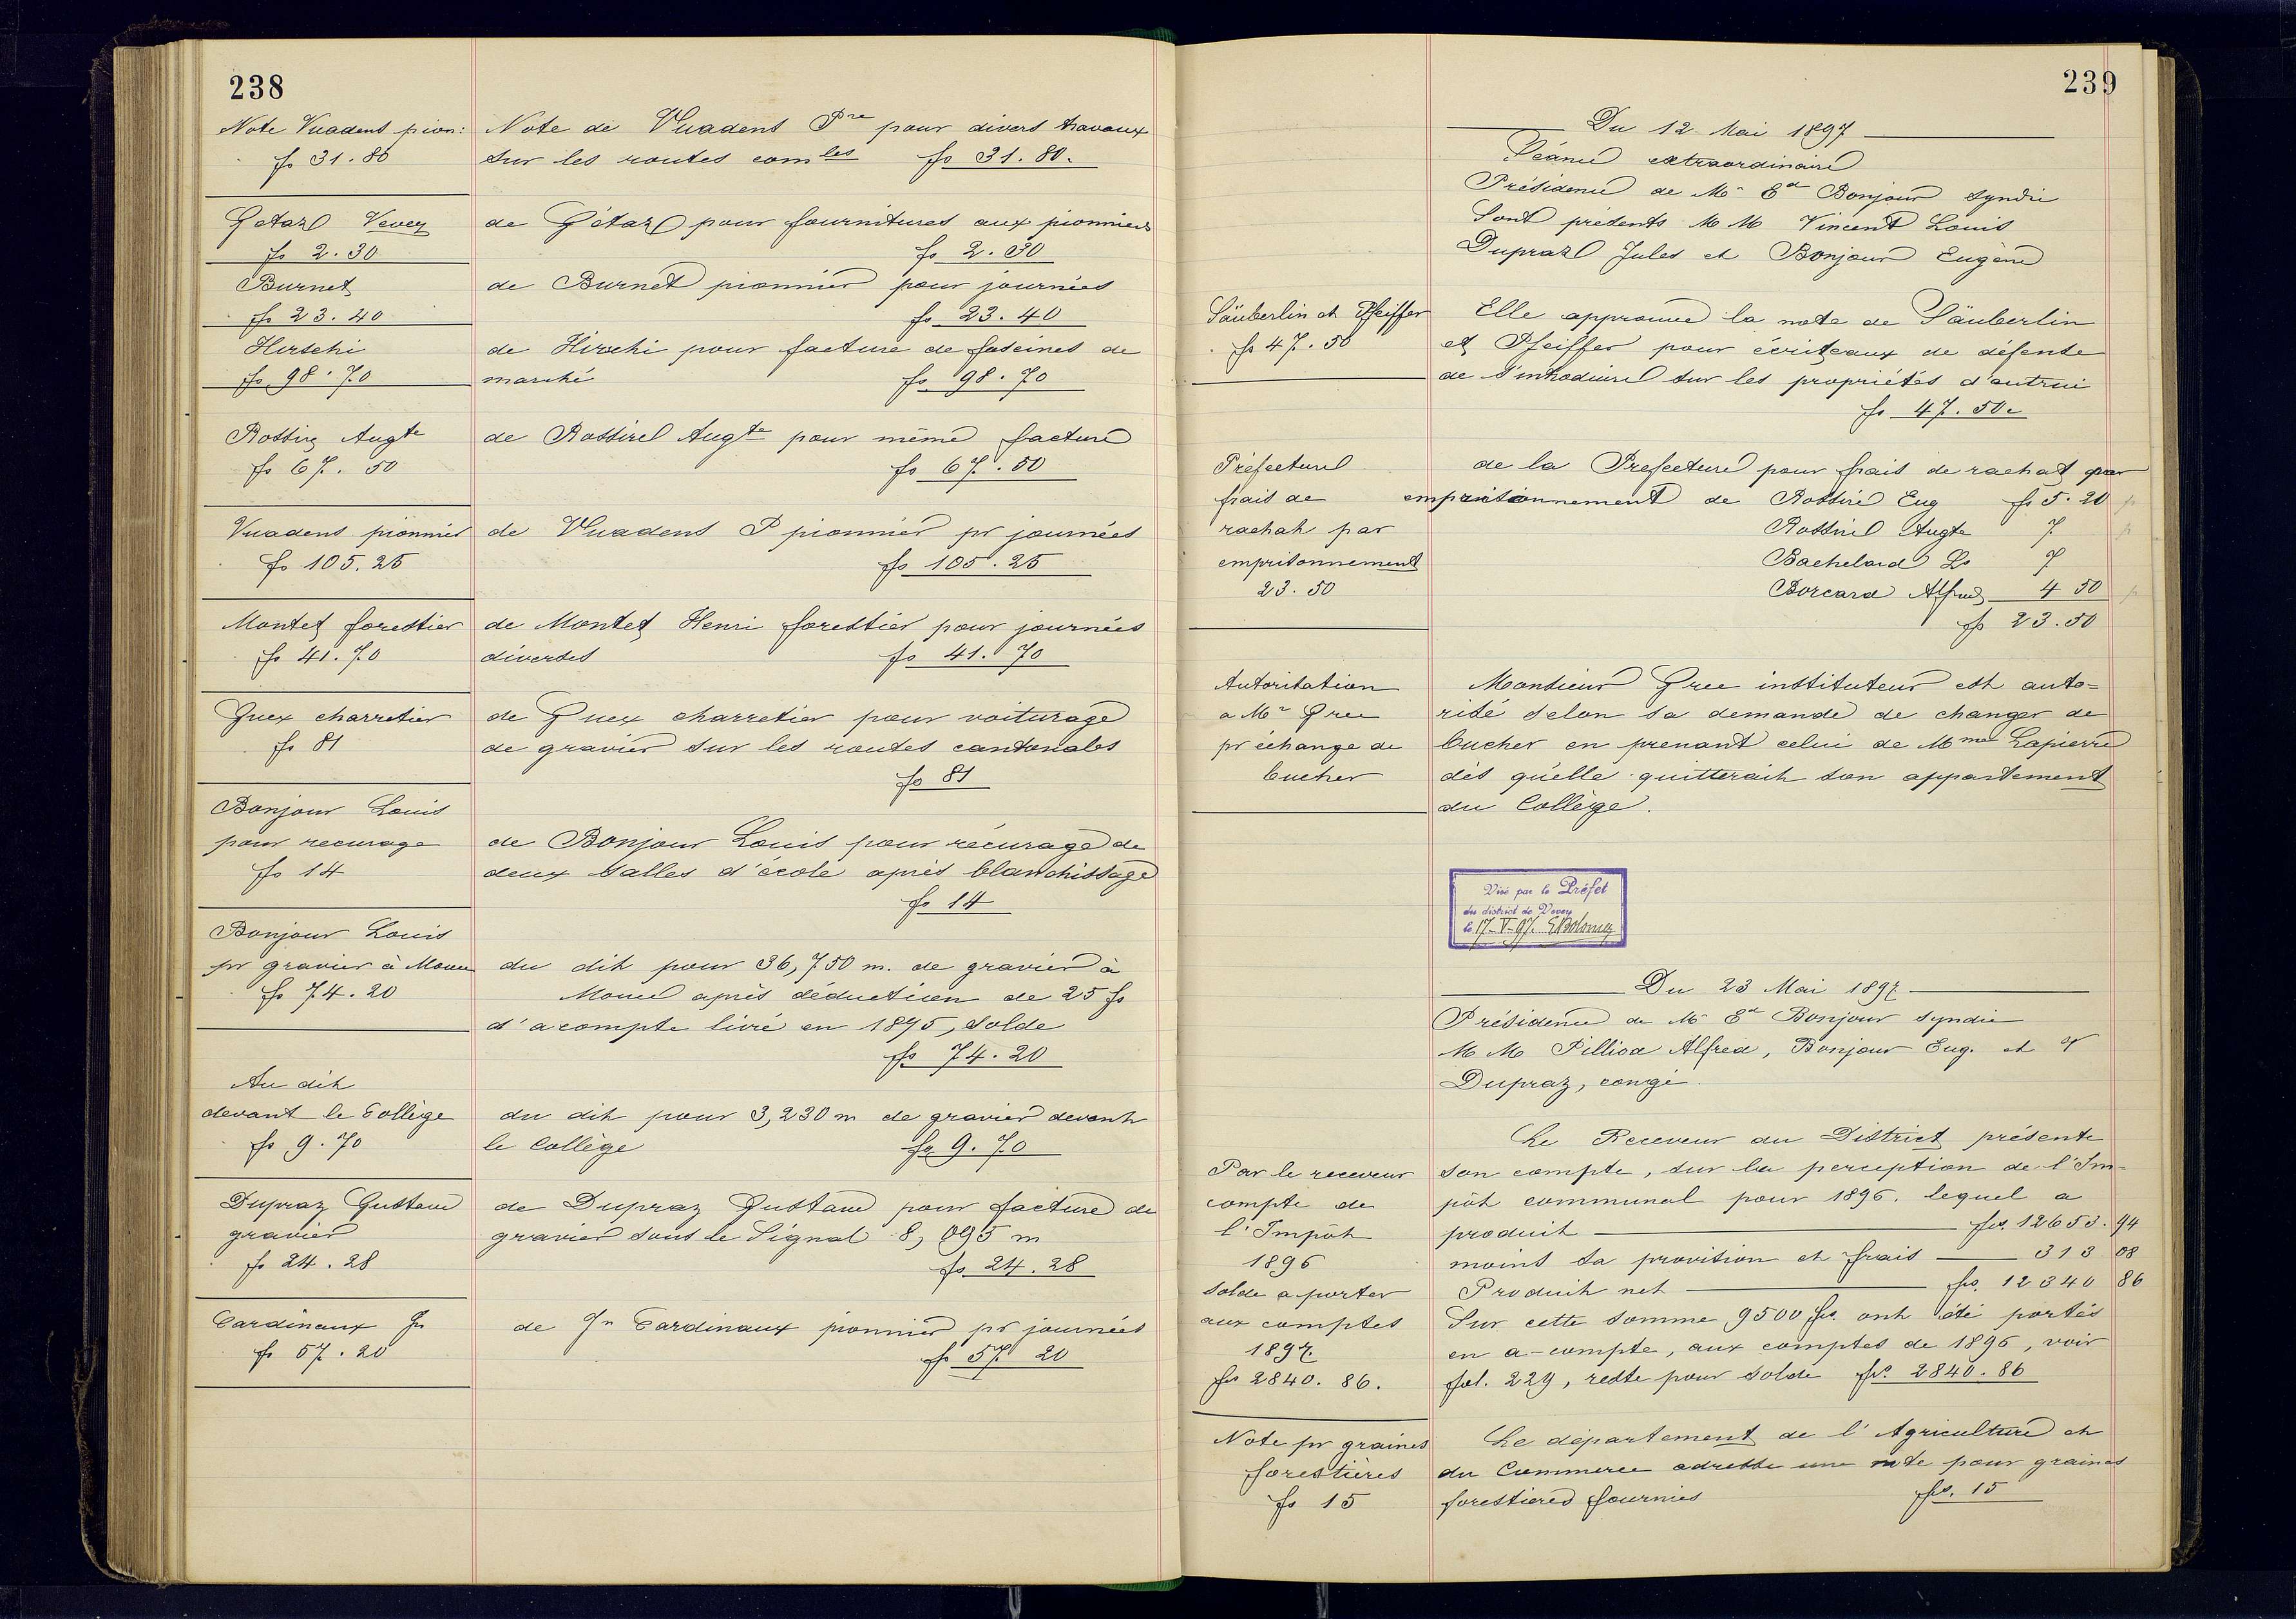 238
Note Vuadens pion:
fs 31.80
Note de Vuadens Pre pour divers travaux
sur les routes comles fs 31.80.
Getaz Vevey
fs 2.30
de Gétaz pour fournitures aux pionniers
fs 2.30
Burnet
fs 23.40
de Burnet pionnier pour journées
fs 23.40
Hirschi
fs 98.70
de Hirschi pour facture de fascines de
marché fs 98.70
Rossire Augte
fs 67.50
de Rossire Augte pour même facture
fs 67.50
Vuadens pionnier
fs 105.25
de Vuadens P pionnier pr journées
fs 105.25
Montet forestier
fs 41.70
de Montet Henri forestier pour journées
diverses fs 41.70
Guex charretier
fs 81
de Guex charretier pour voiturage
de gravier sur les routes cantonales
fs 81
Bonjour Louis
pour recurage
fs 14
de Bonjour Louis pour récurage de
deux salles d'école après blanchissage
fs 14
Bonjour Louis
pr gravier à
fs 74.20
du dit pour 36,750 m. de gravier à
après déduction de 25 fs
d'acompte livré en 1895, solde
fs 74.20
Au dit
devant le Collège
fs 9.70
du dit pour 3,230 m de gravier devant
le Collège fs 9.70
Dupraz Gustave
gravier
fs 24.28
de Dupraz Gustave pour facture de
gravier sous le Signal 8,095 m
fs 24.28
Cardinaux Jn
fs 57.20
de Jn Cardinaux pionnier pr journées
fs 57 20
239
Du 12 Mai 1897
Séance extraordinaire
Présidence de Mr Ed Bonjour syndic
Sont présents M M Vincent Louis
Dupraz Jules et Bonjour Eugène
Säuberlin et Pfeiffer
fs 47.50
Elle approuve la note de Säuberlin
et Pfeiffer pour écriteaux de défense
de s'introduire sur les propriétés d'autrui
fs 47.50.
Préfecture
frais de
rachat par
emprisonnement
23.50
de la Prefecture pour frais de rachat par
emprisonnement de Rossire Eug fs 5.20
Rossire Augte 7
Bachelard Ls 7
Borcard Alfred 4 50
fs 23.50
Autorisation
a Mr Gree
pr échange de
bucher
Monsieur Gree instituteur est auto=
risé selon sa demande de changer de
bucher en prenant celui de Mme Lapierre
dès qu'elle quitterait son appartement
du Collège.
Visé par le Préfet
du district de Vevey
le 17-V-97.
Du 23 Mai 1897
Présidence de Mr Ed Bonjour syndic
M M Pilliod Alfred, Bonjour Eug. et
Dupraz, congé.
Par le receveur
compte de
l'Impôt
1896
solde a porter
aux comptes
1897.
fs 2840.86.
Le Receveur du District présente
son compte, sur la perception de l'Im=
pôt communal pour 1896. lequel a
produit frs. 12653.94
moins sa provision et frais 313 08
Produit net frs. 12340 86
Sur cette somme 9500 frs. ont été portés
en a-compte, aux comptes de 1896, voir
fol. 229, reste pour solde frs. 2840.86
Note pr graines
forestières
fs 15
Le département de l'Agriculture et
du Commerce adresse une note pour graines
forestières fournies frs. 15